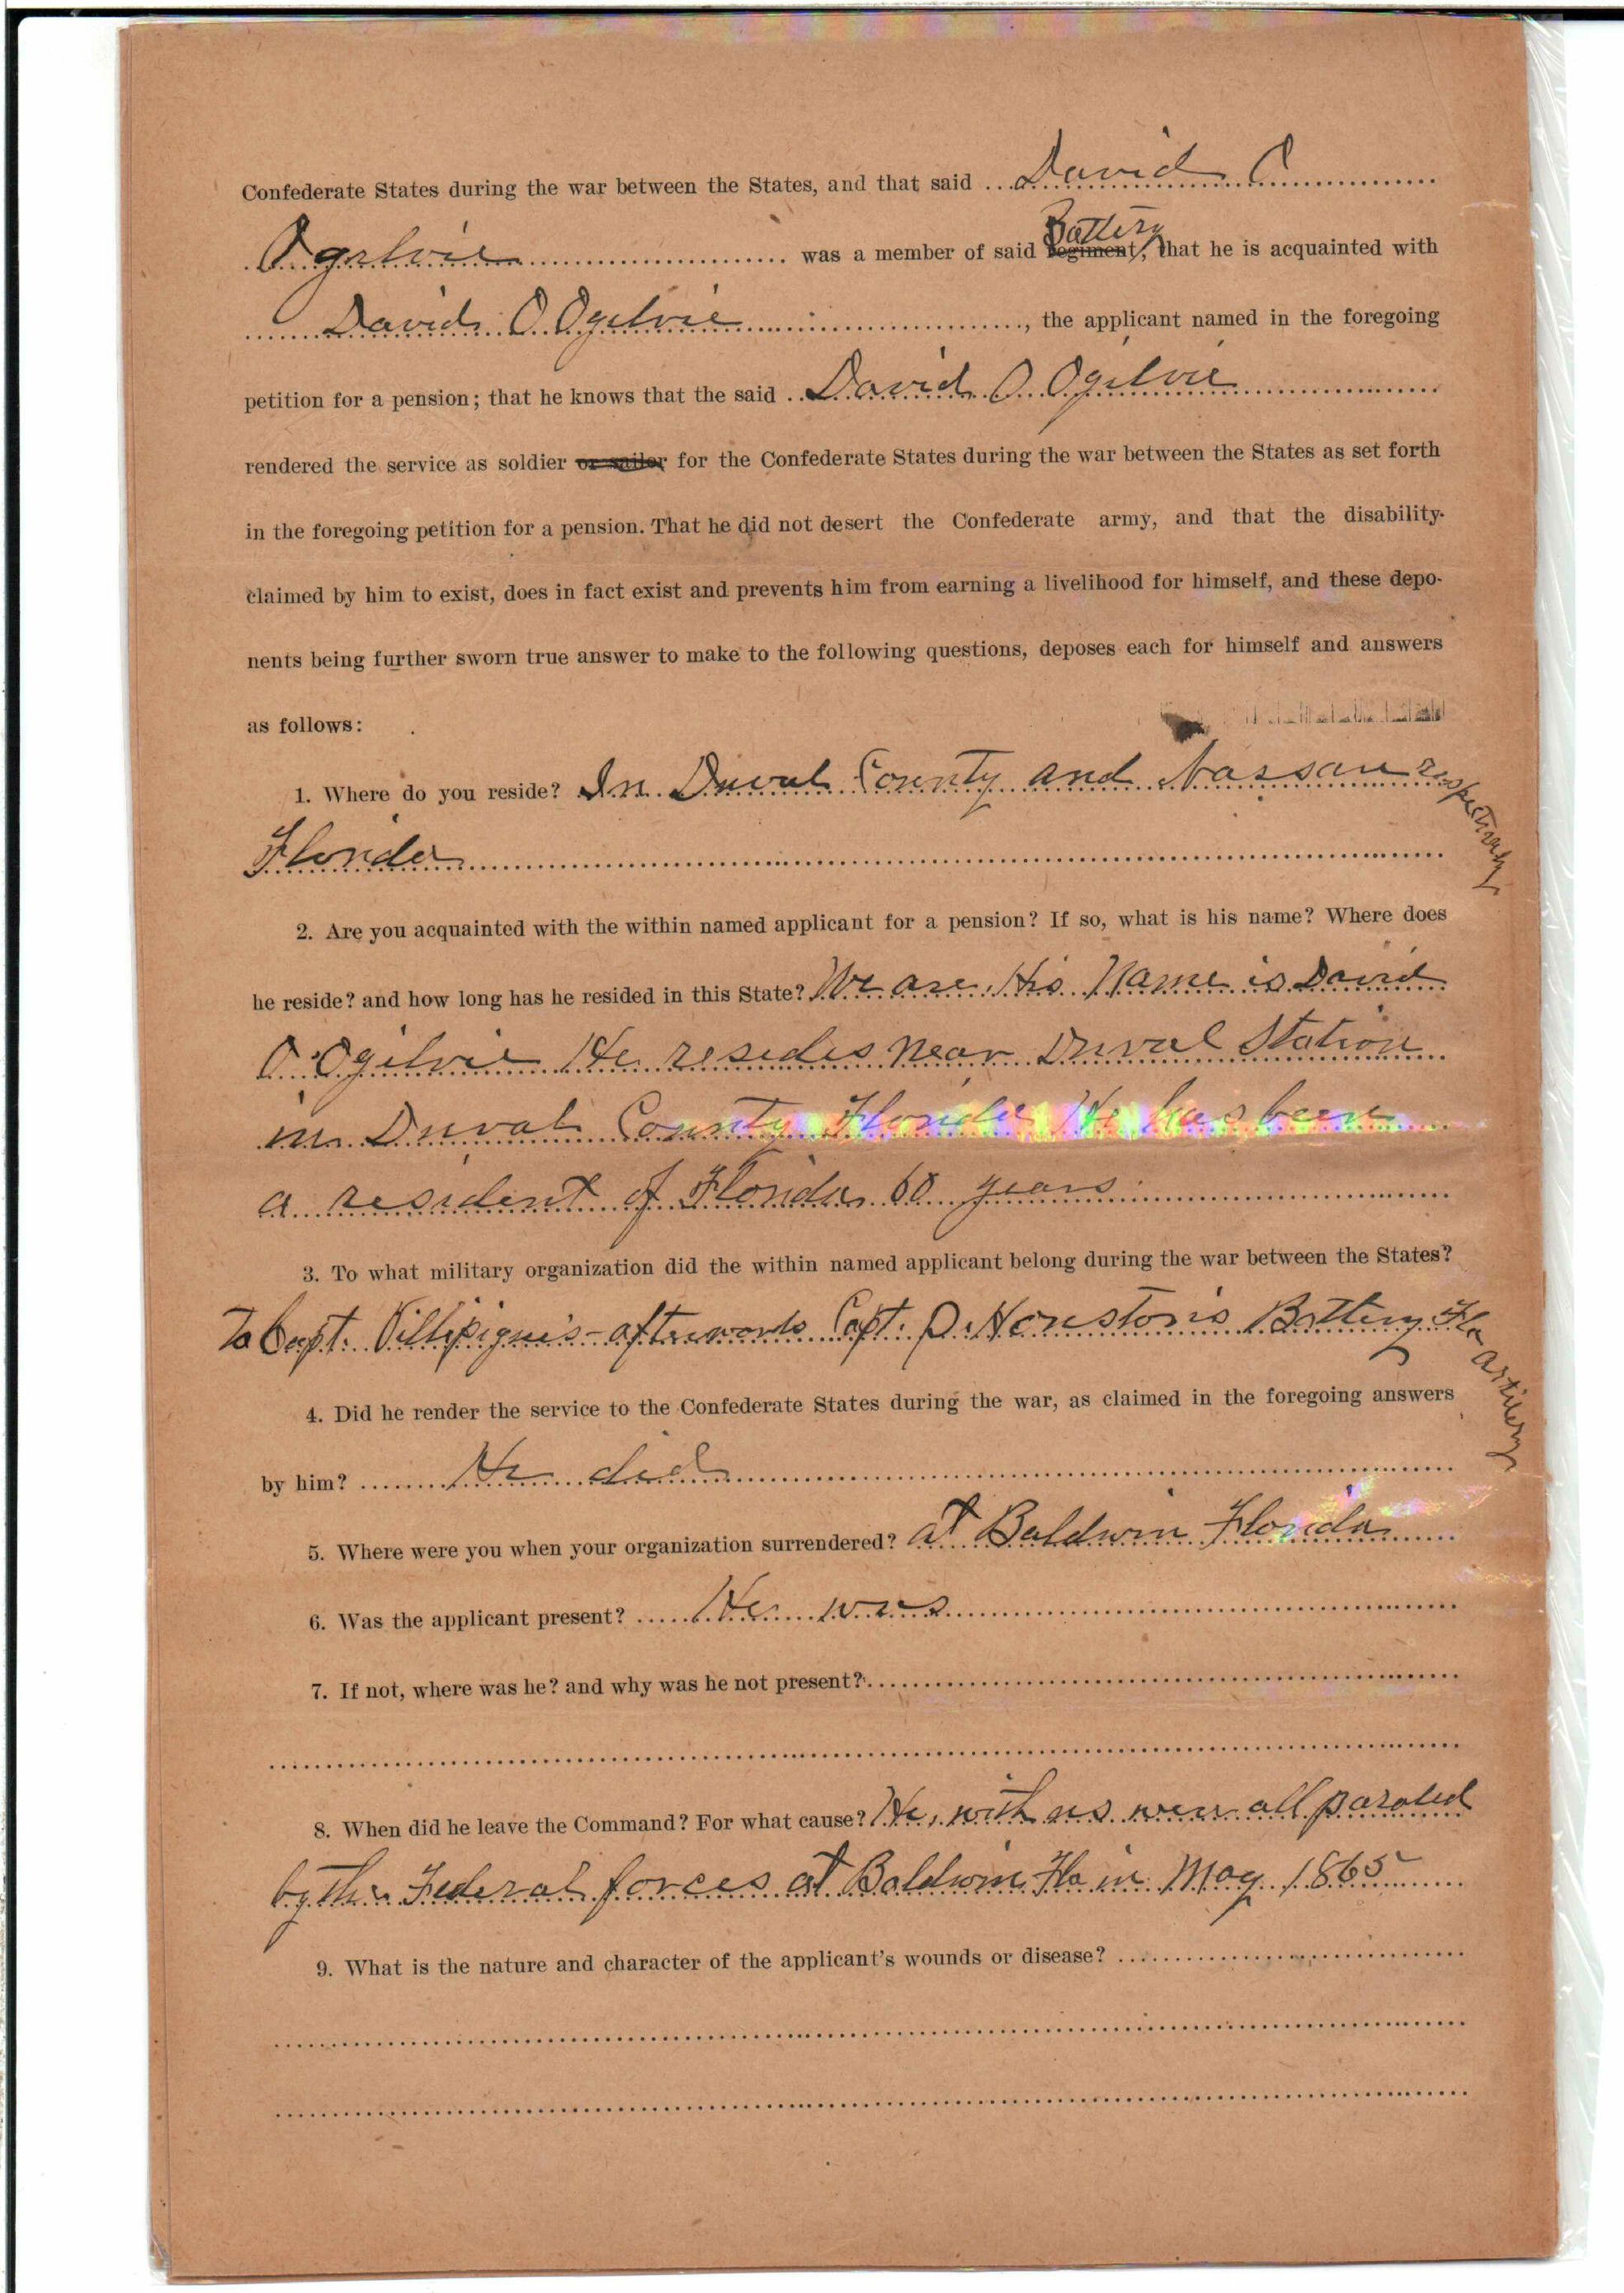 Confederate States during the war between the States, and that said David O
Ogilvie was a member of said Battery regiment, that he is acquainted with
David O Ogilvie, the applicant named in the foregoing
petition for a pension; that he knows that the said David O Ogilvie
rendered the service as soldier or sailor for the Confederate States during the war between the States as set forth
in the foregoing petition for a pension. That he did not desert the Confederate army, and that the disability
claimed by him to exist, does in fact exist and prevents him from earning a livelihood for himself, and these depo-
nents being further sworn true answer to make to the following questions, deposes each for himself and answers
as follows:
1. Where do you reside? In Duval County and Nassau respectively
Florida
2. Are you acquainted with the within named applicant for a pension? If so, what is his name? Where does
he reside? and how long has he resided in this State? We are. His Name is David
O Ogilvie He resides near Duval Station
in Duval County Florida He has been
a resident of Florida 60 years
3. To what military organization did the within named applicant belong during the war between the States?
To Capt. Villipigue's - afterwards Capt. P. Houston's Battery Fla artilery
4. Did he render the service to the Confederate States during the war, as claimed in the foregoing answers
by him? He did
5. Where were you when your organization surrendered? at Baldwin Florida
6. Was the applicant present? He was
7. If not, where was he? and why was he not present?
8. When did he leave the Command? For what cause? He, with us were all paroled
by the Federal forces at Baldwin Fla in May 1865
9. What is the nature and character of the applicant's wounds or disease?